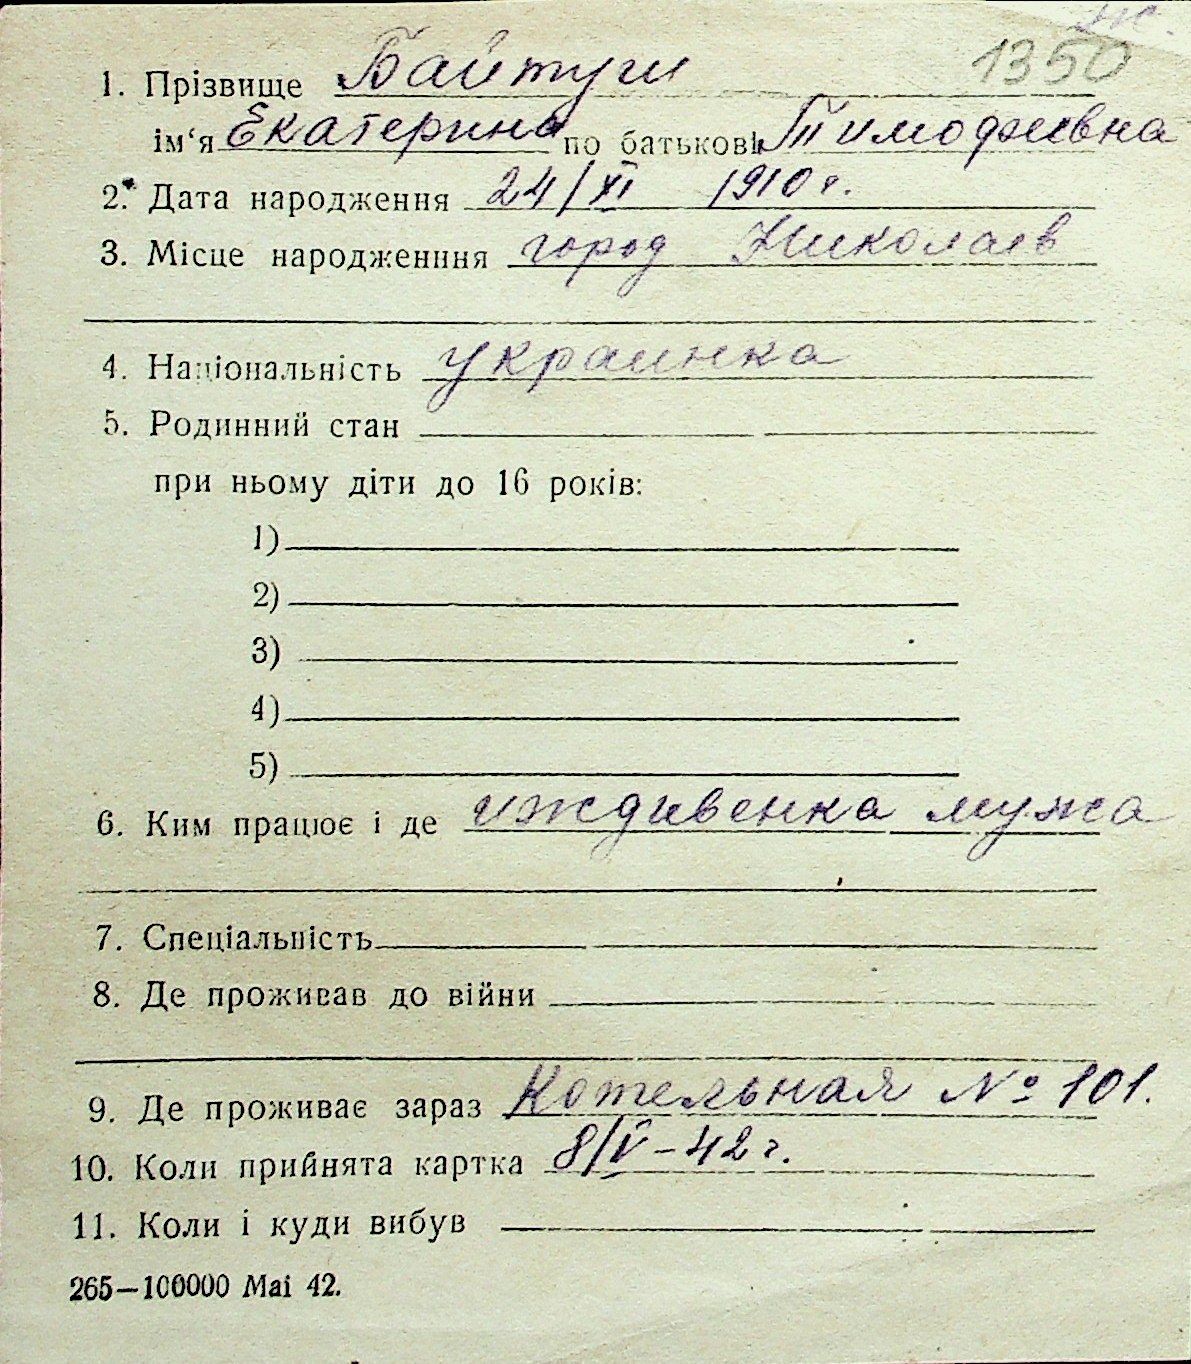 1350
1. Прізвище Байтуш
ім'я Екатерина по батькові Тимофеевна
2. Дата народження 24/XI 1910 г.
3. Місце народженння город Николаев
4. Національність украинка
5. Родинний стан
при ньому діти до 16 років:
1)
2)
3)
4)
5)
6. Ким працює і де иждивенка мужа
7. Спеціальність
8. Де проживав до війни
9. Де проживає зараз Котельная № 101.
10. Коли прийнята картка 8/V – 42 г.
11. Коли і куди вибув
265—100000 Mai 42.